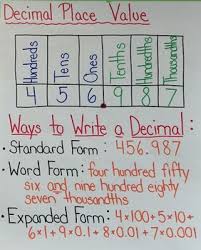 Decimal Place Value
Hundreds Tens Ones Tenths Hundredths Thousandths
4 5 6. 9 8 7
Ways to Write a Decimal:
• Standard Form: 456.987
• Word Form: four hundred fifty
six and nine hundred eighty
seven thousandths
• Expanded Form: 4×100+5×10+
6×1+9×0.1+8×0.01+7×0.001